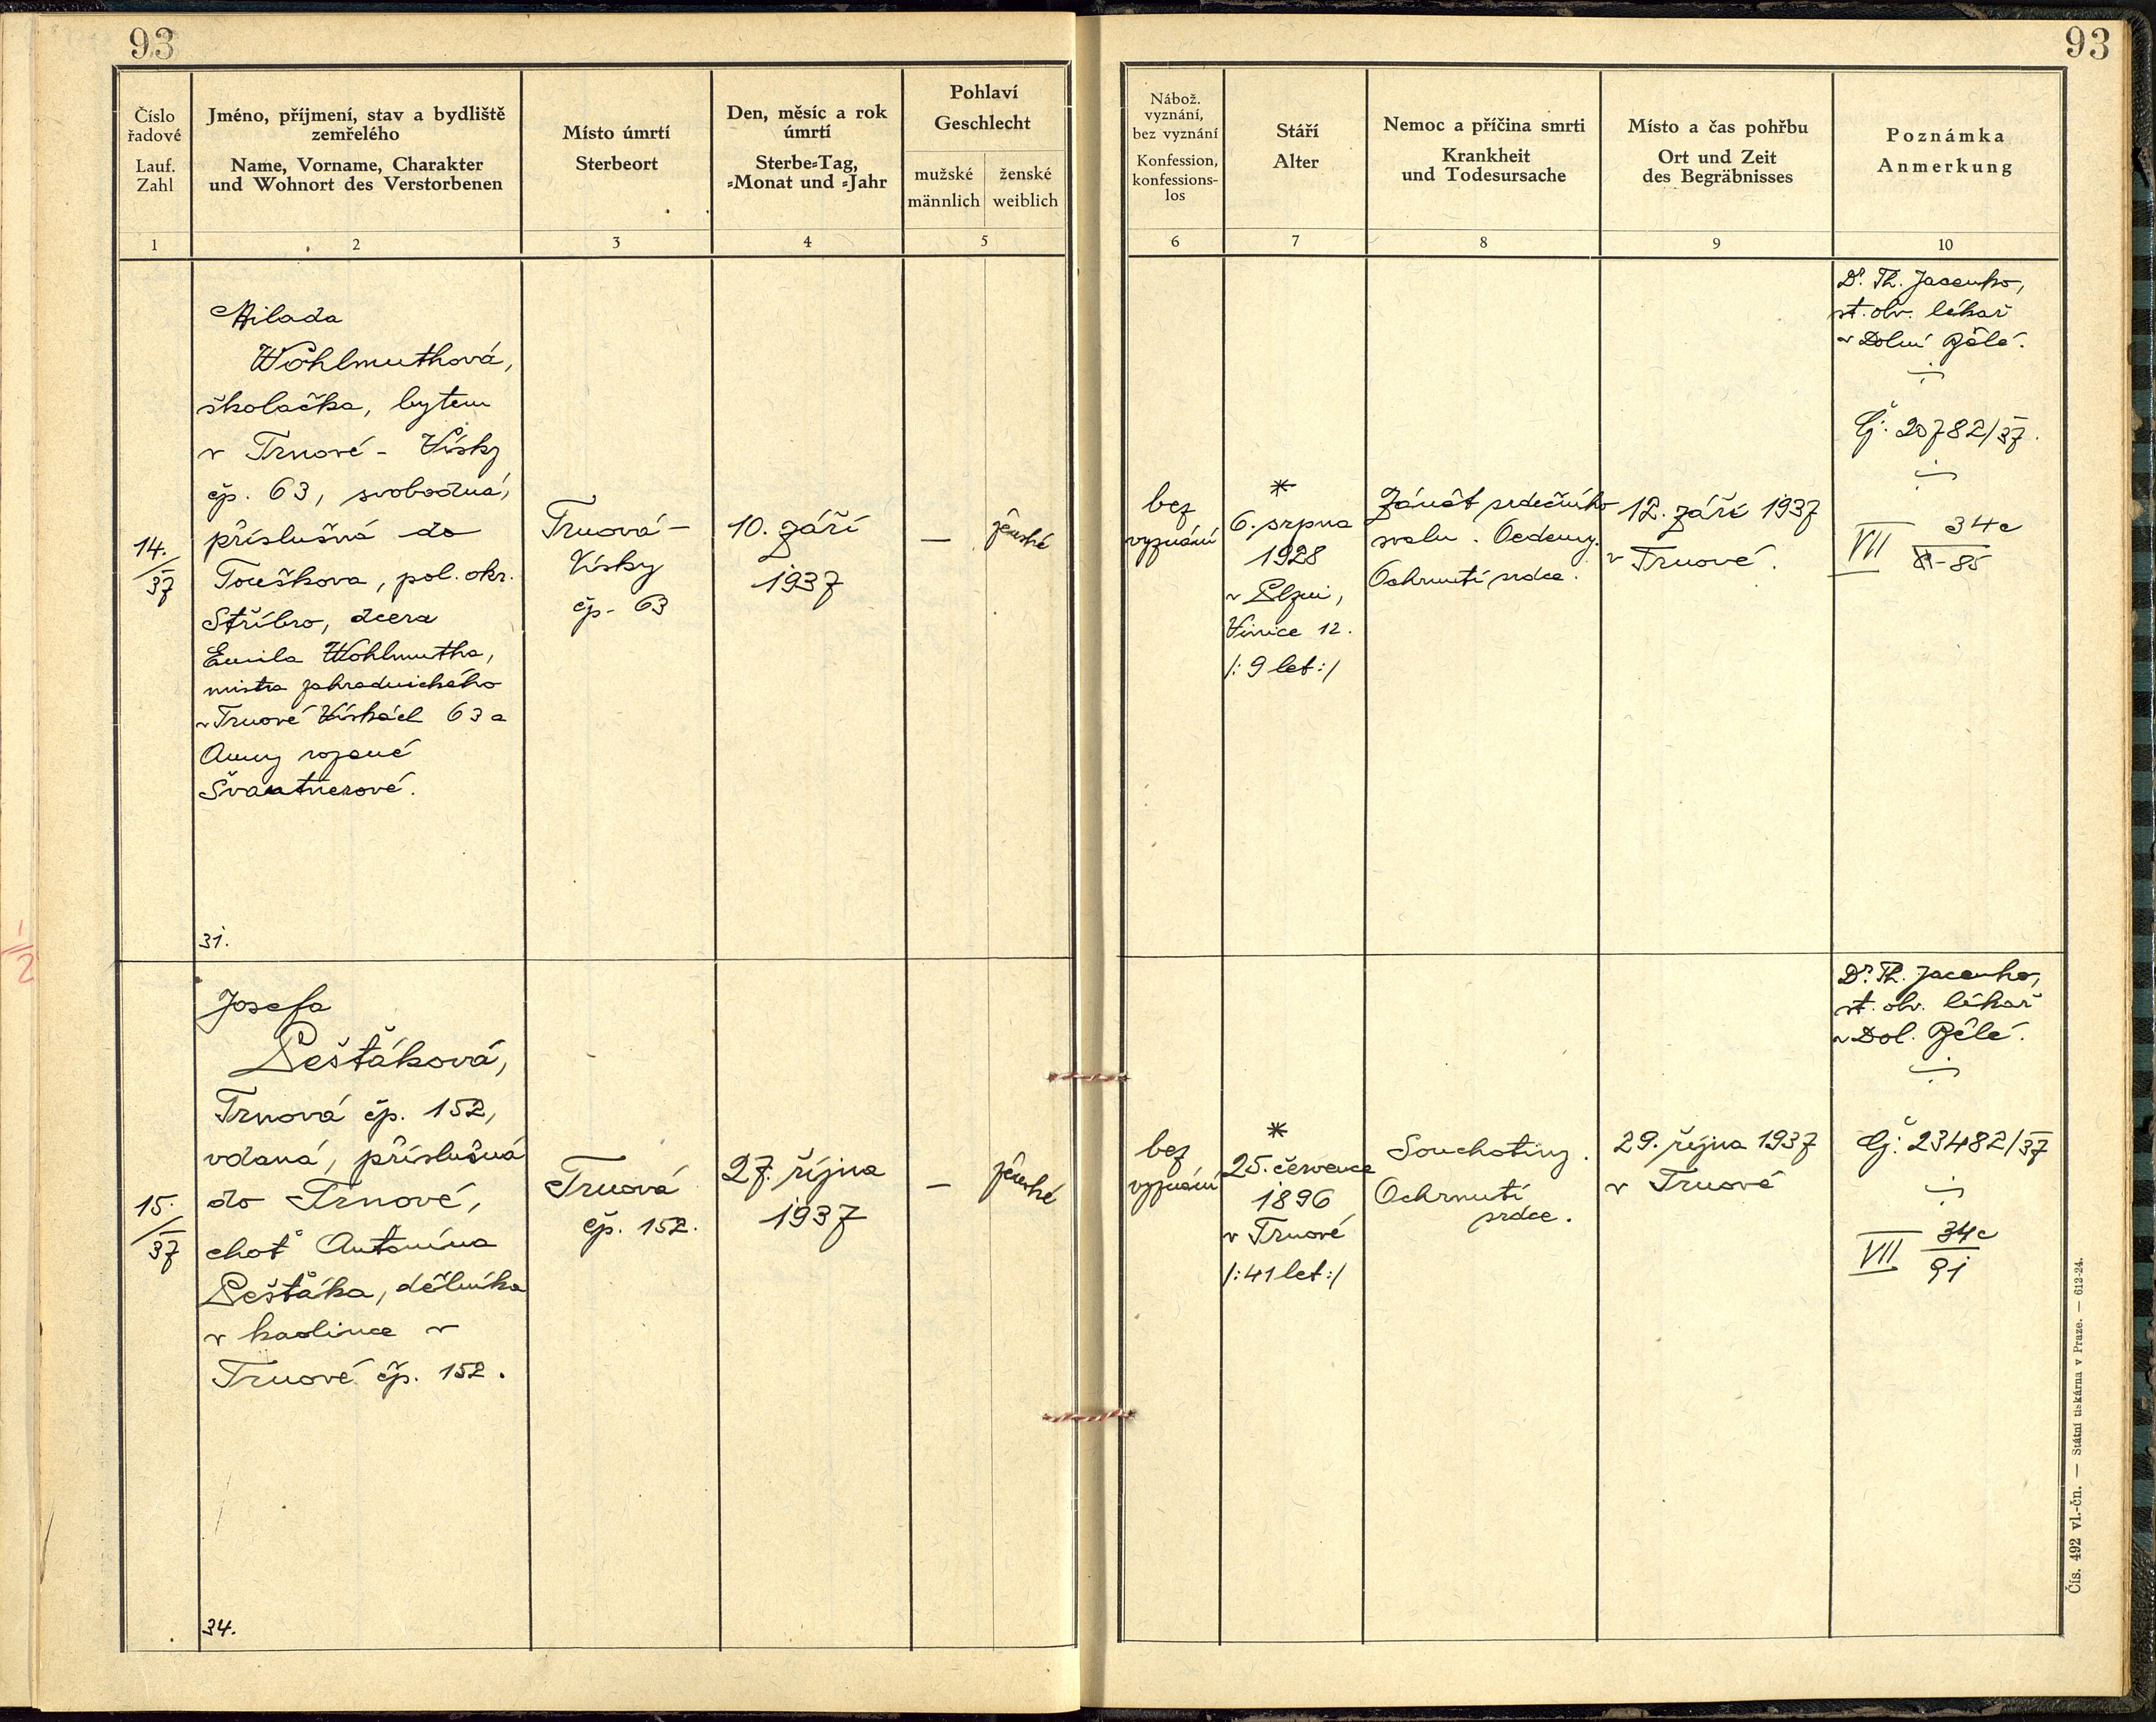 93
93
Číslo
řadové
Lauf.
Zahl
Jméno, příjmení, stav a bydliště
zemřelého
Name, Vorname, Charakter
und Wohnort des Verstorbenen
Místo úmrtí
Sterbeort
Den, měsíc a rok
úmrtí
Sterbe=Tag,
=Monat und =Jahr
Pohlaví
Geschlecht
mužské
männlich
ženské
weiblich
Nábož.
vyznání,
bez vyznání
Konfession,
konfessions-
los
Stáří
Alter
Nemoc a příčina smrti
Krankheit
und Todesursache
Místo a čas pohřbu
Ort und Zeit
des Begräbnisses
Poznámka
Anmerkung
1
2
3
4
5
6
7
8
9
10
14.
37
Milada
Wohlmuthová,
školačka, bytem
v Trnové - Vísky
čp. 63, svobodná,
příslušná do
Touškova, pol. okr.
Stříbro, dcera
Emila Wohlmutha,
mistra zahradnického
v Trnové Vískách 63 a
Anny rozené
Švantnerové.
31.
Trnová -
Vísky
čp. 63
10. září
1937
—
ženské
bez
vyznání
*
6. srpna
1928
v Plzni,
Vinice 12.
/: 9 let :/
Zánět srdečního
svalu. Oedemy.
Ochrnutí srdce.
12. září 1937
v Trnové.
Dr. Th. Jacenko,
st. obv. lékař
v Dolní Bělé.
Čj: 20782/37.
VII 34c
-85
15.
37
Josefa
Pešťáková,
Trnová čp. 152,
vdaná, příslušná
do Trnové,
choť Antonína
Pešťáka, dělníka
v kaolince v
Trnové čp. 152.
34.
Trnová
čp. 152.
27. října
1937
—
ženské
bez
vyznání
*
25. července
1896
v Trnové
/: 41 let :/
Souchotiny.
Ochrnutí
srdce.
29. října 1937
v Trnové
Dr. Th. Jacenko,
st. obv. lékař
v Dol. Bělé.
Čj: 23482/37
VII 34c
91
Čís. 492 vl.-čn. — Státní tiskárna v Praze. — 612-24.